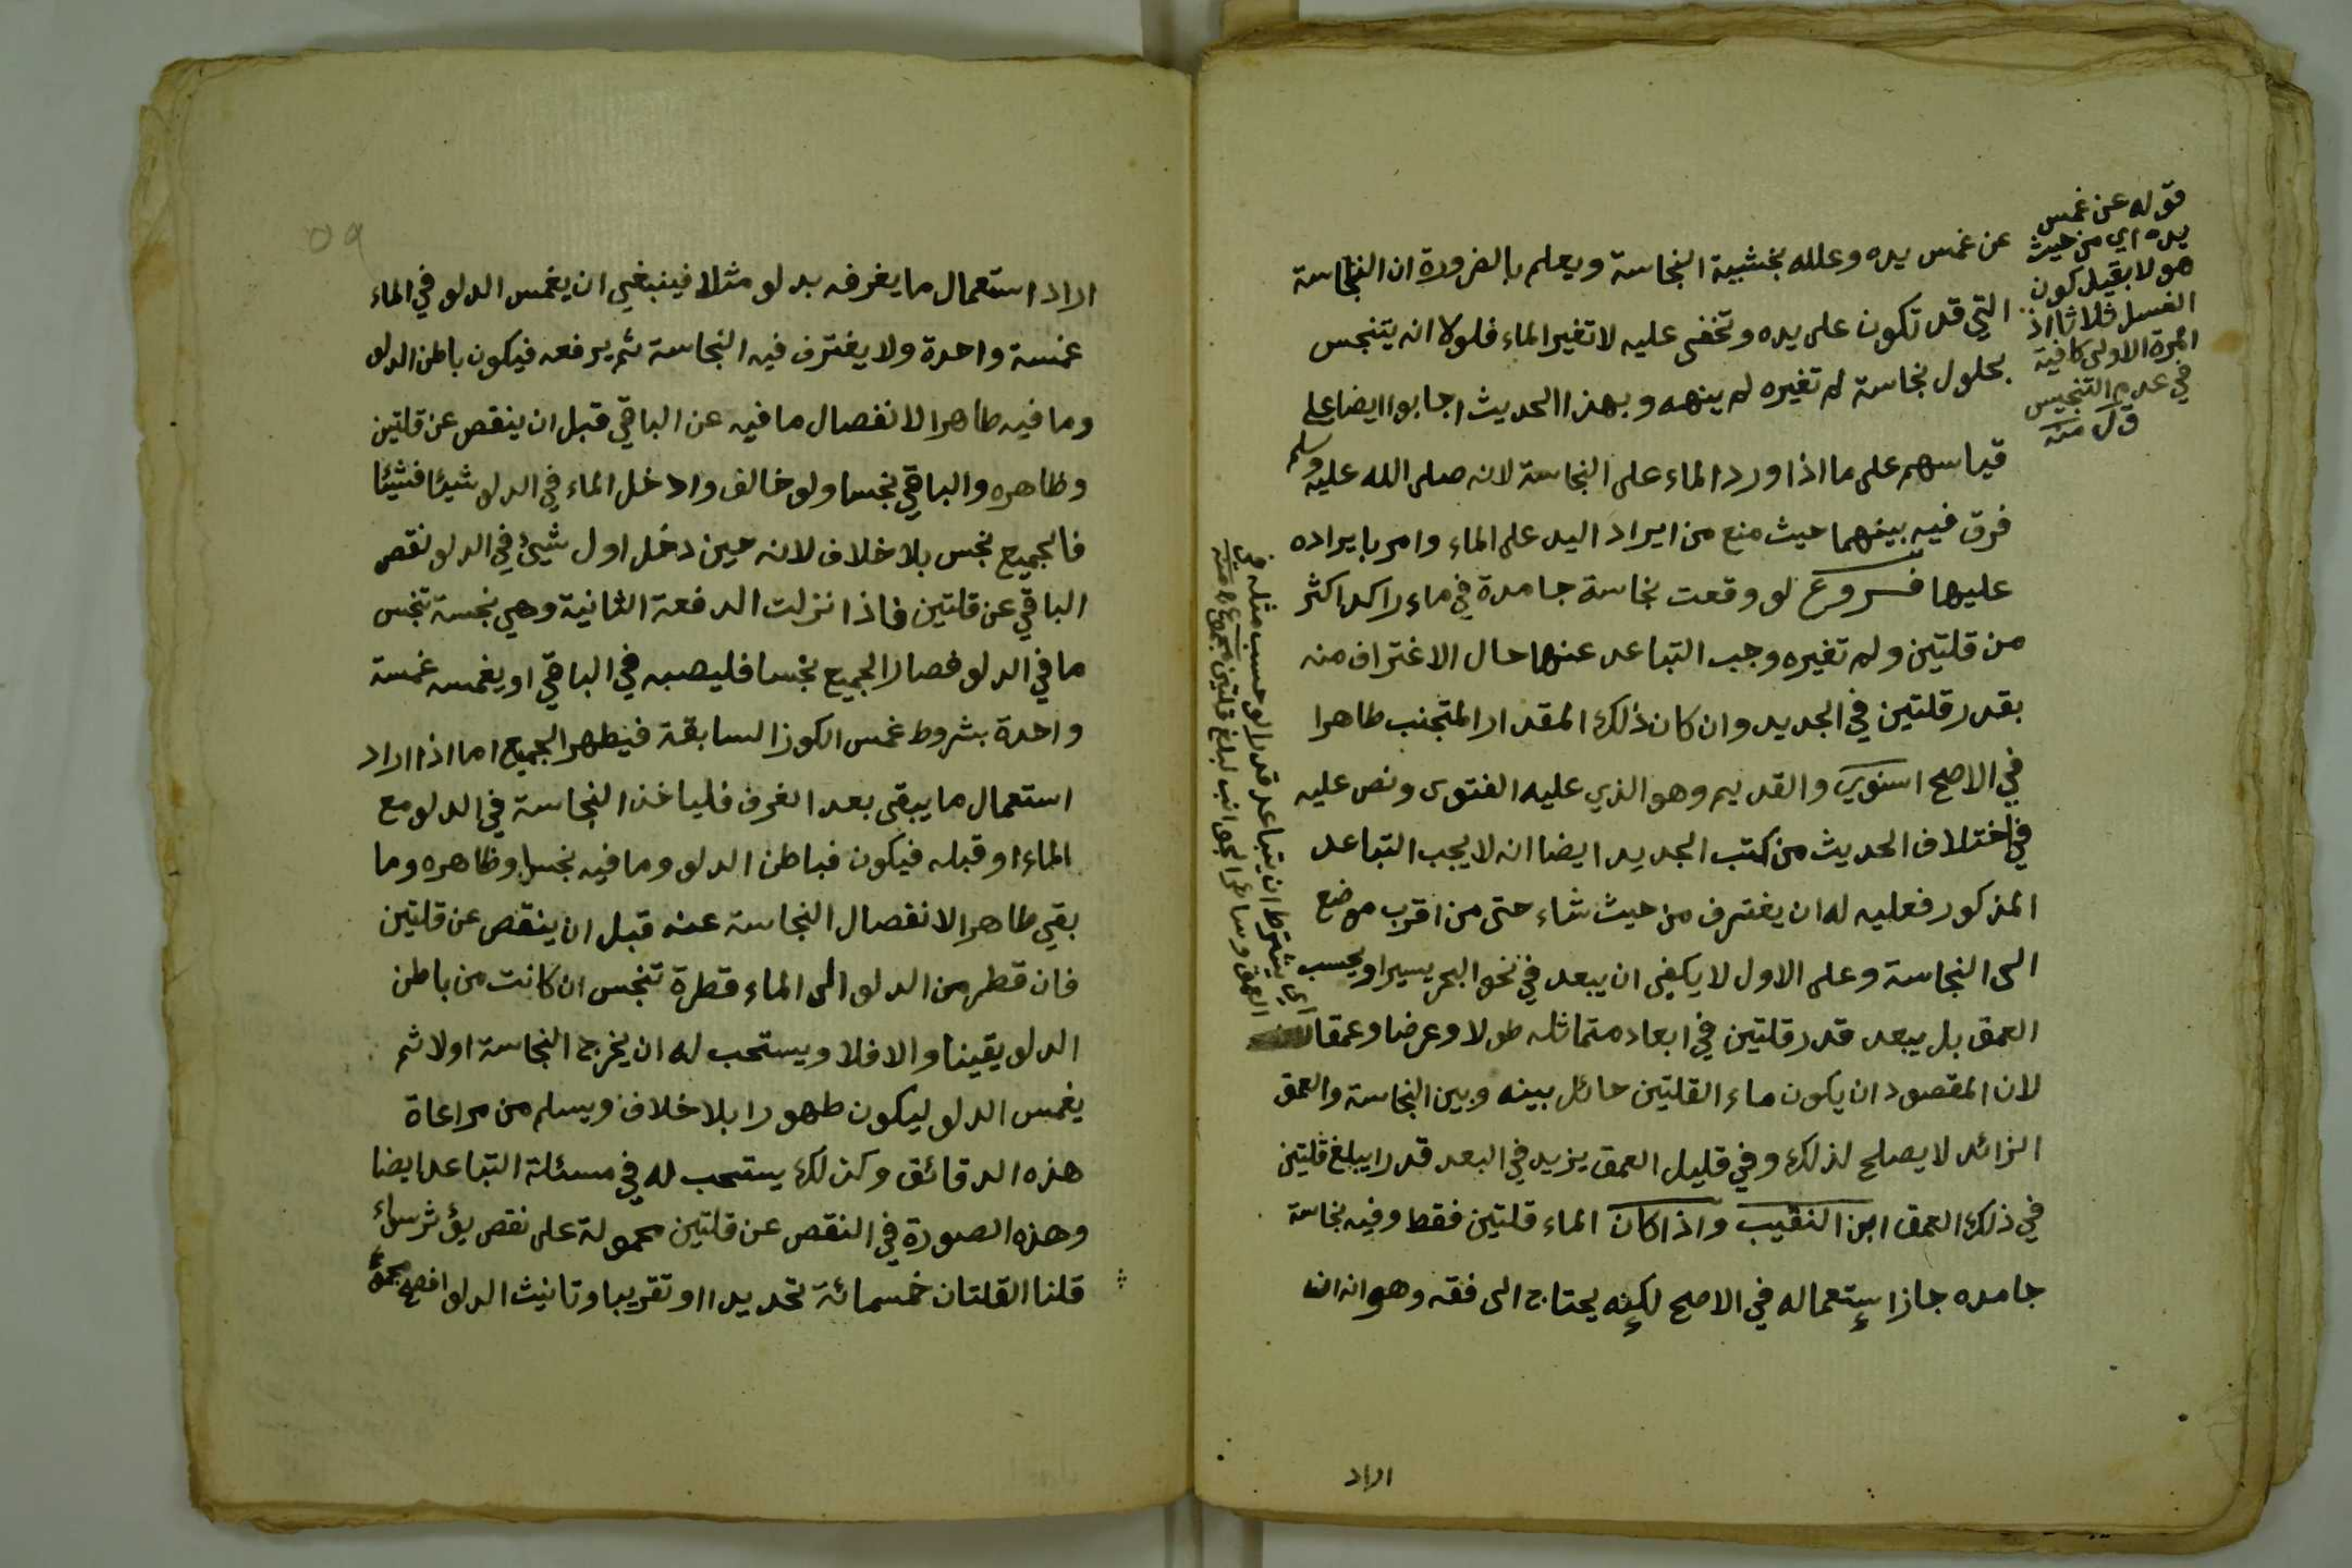 عن غمس يده وعلله بخشية النجاسة ويعلم بالضرورة ان النجاسة
التي قد تكون على يده وتخفى عليه لا تغير الماء فلولا انه يتنجس
بحلول نجاسة لم تغيره لم ينهه وبهذا الحديث اجابوا ايضا على
قياسهم على ما اذا ورد الماء على النجاسة لانه صلى الله عليه وسلم
فرق فيه بينهما حيث منع من ايراد اليد على الماء وامر بايراده
عليها فروع لو وقعت نجاسة جامدة في ماء راكد اكثر
من قلتين ولم تغيره وجب التباعد عنها حال الاغتراف منه
بقدر قلتين في الجديد وان كان ذلك المقدار المتجنب طاهرا
في الاصح اسنوي والقديم وهو الذي عليه الفتوى ونص عليه
في اختلاف الحديث من كتب الجديد ايضا انه لا يجب التباعد
المذكور فعليه له ان يغترف من حيث شاء حتى من اقرب موضع
الى النجاسة وعلى الاول لا يكفي ان يبعد في نحو البحر يسيرا ويحسب
العمق بل يبعد قدر قلتين في ابعاد متماثله طولا وعرضا وعمقا
لان المقصود ان يكون ماء القلتين حائل بينه وبين النجاسة والعمق
الزائد لا يصلح لذلك وفي قليل العمق يزيد في البعد قدرا يبلغ قلتين
في ذلك العمق ابن النقيب واذا كان الماء قلتين فقط وفيه نجاسة
جامده جاز استعماله في الاصح لكنه يحتاج الى فقه وهو انه ان
اراد
قوله عن غمس
يده اي من حيث
هو لا بقيد كون
الغسل ثلاثا اذ
المرة الاولى كافية
في عدم التنجيس
منه
اي يشترط ان يتباعد قدرا لو حسب مثله في
العمق وسائر الجوانب لبلغ قلتين مجموع منه
٥٩
اراد استعمال ما يغرفه بدلو مثلا فينبغي ان يغمس الدلو في الماء
غمسة واحدة ولا يغترف فيه النجاسة ثم يرفعه فيكون باطن الدلو
وما فيه طاهرا لانفصال ما فيه عن الباقي قبل ان ينقص عن قلتين
وظاهره والباقي نجسا ولو خالف وادخل الماء في الدلو شيئا فشيئا
فالجميع نجس بلا خلاف لانه حين دخل اول شيئ في الدلو نقص
الباقي عن قلتين فاذا نزلت الدفعة الثانية وهي نجسة تنجس
ما في الدلو فصار الجميع نجسا فليصبه في الباقي او يغمسه غمسة
واحدة بشروط غمس الكوز السابقة فيطهر الجميع اما اذا اراد
استعمال ما يبقى بعد الغرف فلياخذ النجاسة في الدلو مع
الماء او قبله فيكون فباطن الدلو وما فيه نجسا وظاهره وما
بقي طاهرا لانفصال النجاسة عنه قبل ان ينقص عن قلتين
فان قطر من الدلو الى الماء قطرة تنجس ان كانت من باطن
الدلو يقينا والا فلا ويستحب له ان يخرج النجاسة اولا ثم
يغمس الدلو ليكون طهورا بلا خلاف ويسلم من مراعاة
هذه الدقائق وكذلك يستحب له في مسئلة التباعد ايضا
وهذه الصورة في النقص عن قلتين محمولة على نقص يؤثر سواء
قلنا القلتان خمسمائة تحديدا او تقريبا وتانيث الدلو افصح مجموع